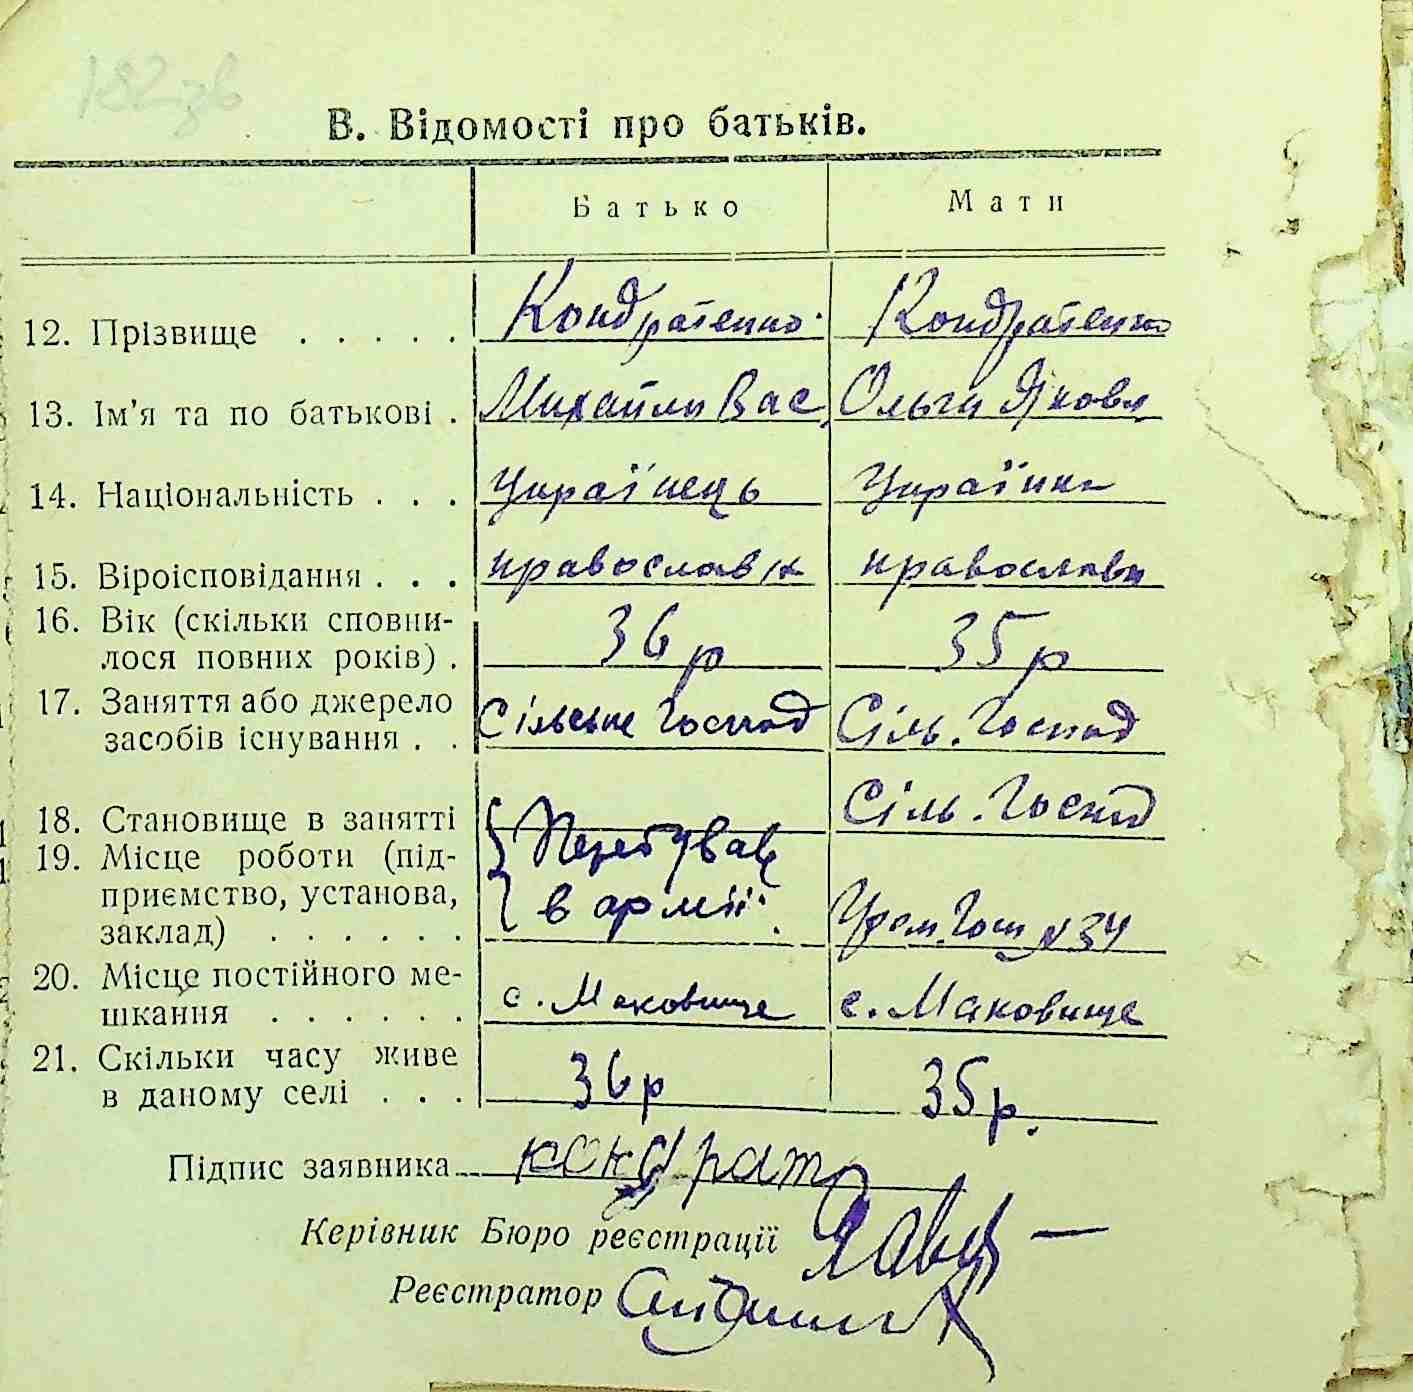 182зв
В. Відомості про батьків.
Батько Мати
12. Прізвище . . . . . Кондратенко Кондратенко
13. Ім'я та по батькові . Михайло Вас. Ольга Яковл
14. Національність . . . Українець Українка
15. Віроісповідання . . . православн православн
16. Вік (скільки сповни-
лося повних років) . 36 р 35 р
17. Заняття або джерело
засобів існування . . Сільське Господ Сіль. Господ
18. Становище в занятті Сіль. Господ
19. Місце роботи (під- Перебував
приємство, установа, в армії.
заклад) . . . . . . Гром. Госп №34
20. Місце постійного ме-
шкання . . . . . . с. Маковище с. Маковище
21. Скільки часу живе
в даному селі . . . 36 р 35 р.
Підпис заявника кондрат
Керівник Бюро реєстрації
Реєстратор